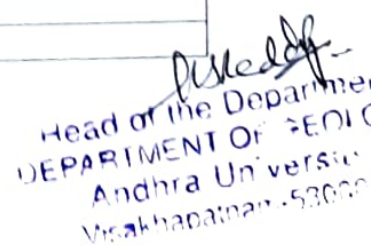 Head of the Departmen
DEPARTMENT OF GEOLO
Andhra Universi
Visakhapatnam-530